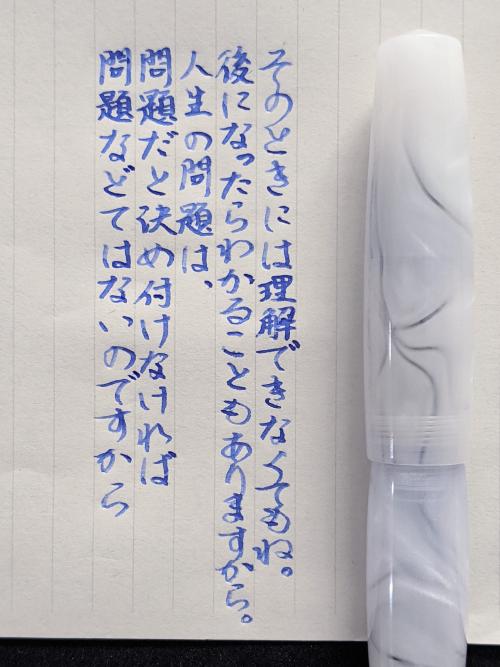 そのときには理解できなくてもね。
後になったらわかることもありますから。
人生の問題は、
問題だと決め付けなければ
問題などではないのですから